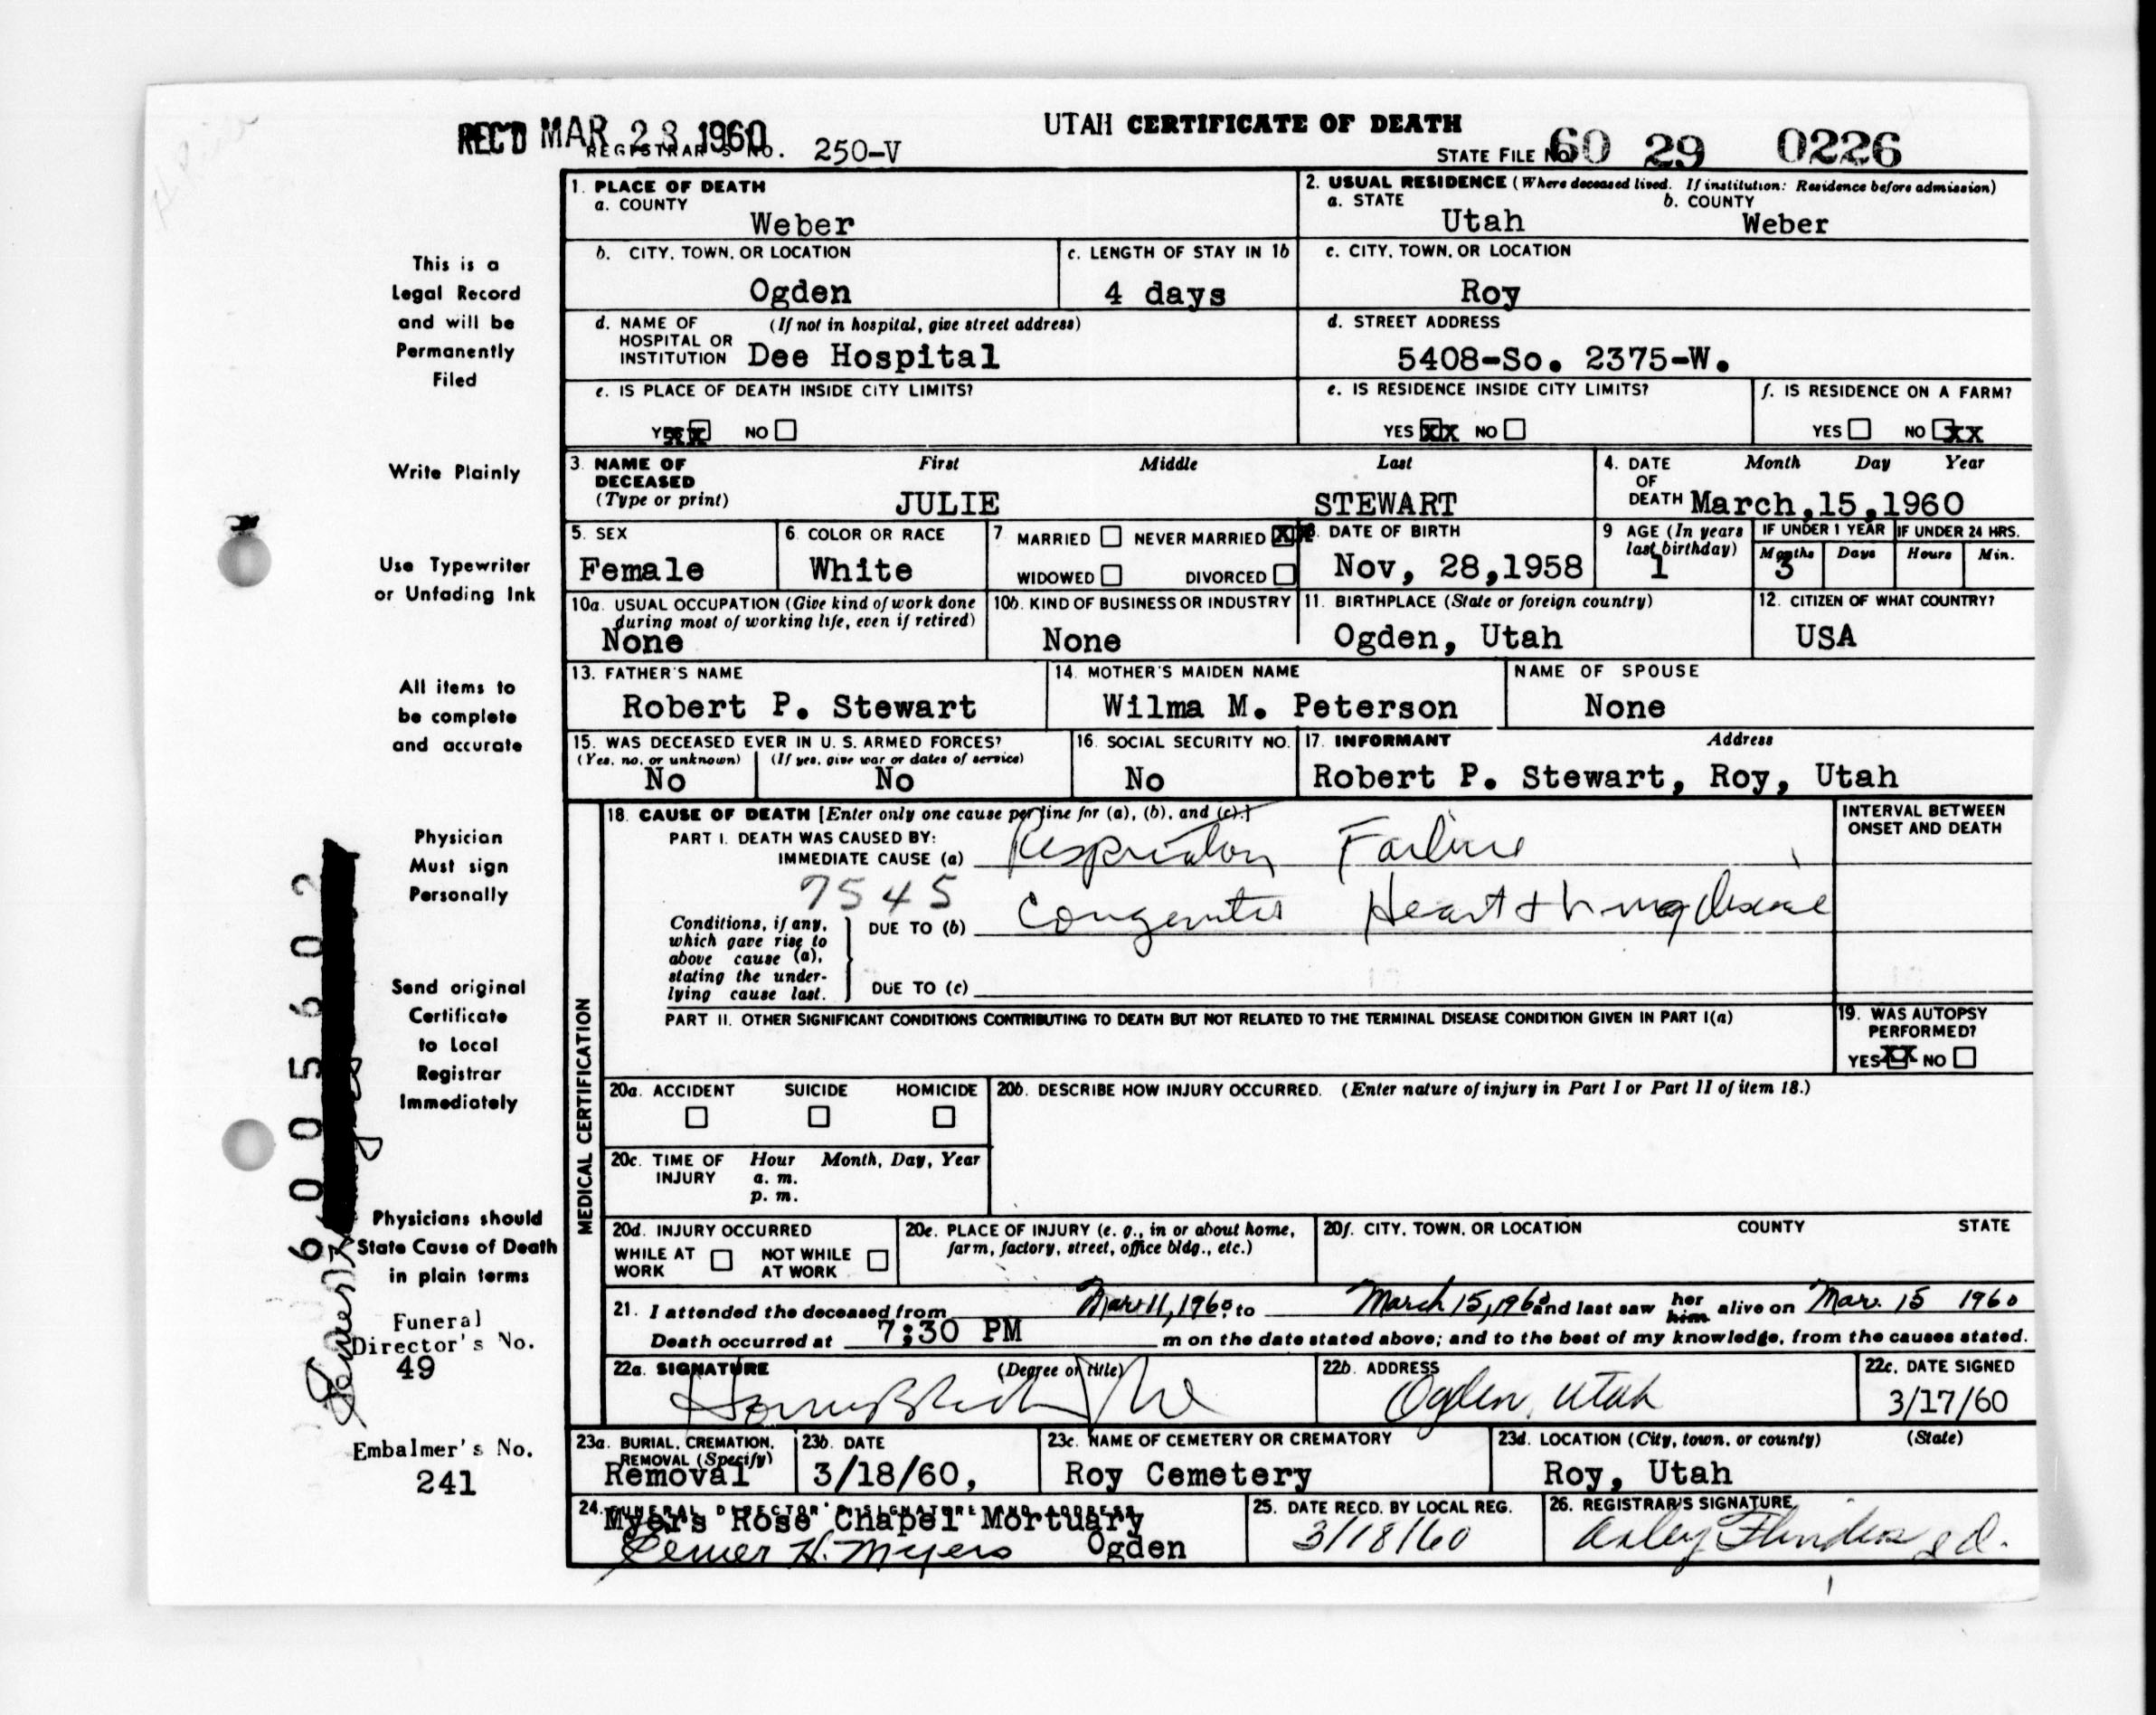 REC'D MAR 23 1960
REGISTRAR'S NO. 250-V
UTAH CERTIFICATE OF DEATH
STATE FILE NO. 60 29 0226
This is a
Legal Record
and will be
Permanently
Filed
Write Plainly
Use Typewriter
or Unfading Ink
All items to
be complete
and accurate
Physician
Must sign
Personally
Send original
Certificate
to Local
Registrar
Immediately
Physicians should
State Cause of Death
in plain terms
Funeral
Director's No.
49
Embalmer's No.
241
6005602
1. PLACE OF DEATH
a. COUNTY
Weber
2. USUAL RESIDENCE (Where deceased lived. If institution: Residence before admission)
a. STATE
Utah
b. COUNTY
Weber
b. CITY, TOWN, OR LOCATION
Ogden
c. LENGTH OF STAY IN 1b
4 days
c. CITY, TOWN, OR LOCATION
Roy
d. NAME OF HOSPITAL OR INSTITUTION
(If not in hospital, give street address)
Dee Hospital
d. STREET ADDRESS
5408-So. 2375-W.
e. IS PLACE OF DEATH INSIDE CITY LIMITS?
YES XX NO
e. IS RESIDENCE INSIDE CITY LIMITS?
YES XX NO
f. IS RESIDENCE ON A FARM?
YES NO XX
3. NAME OF DECEASED
(Type or print)
First Middle Last
JULIE STEWART
4. DATE OF DEATH
Month Day Year
March,15,1960
5. SEX
Female
6. COLOR OR RACE
White
7 MARRIED NEVER MARRIED XX
WIDOWED DIVORCED
8. DATE OF BIRTH
Nov, 28,1958
9 AGE (In years last birthday)
1
IF UNDER 1 YEAR
Months Days
3
IF UNDER 24 HRS.
Hours Min.
10a. USUAL OCCUPATION (Give kind of work done during most of working life, even if retired)
None
10b. KIND OF BUSINESS OR INDUSTRY
None
11. BIRTHPLACE (State or foreign country)
Ogden, Utah
12. CITIZEN OF WHAT COUNTRY?
USA
13. FATHER'S NAME
Robert P. Stewart
14. MOTHER'S MAIDEN NAME
Wilma M. Peterson
NAME OF SPOUSE
None
15. WAS DECEASED EVER IN U. S. ARMED FORCES?
(Yes, no, or unknown)
No
(If yes, give war or dates of service)
No
16. SOCIAL SECURITY NO.
No
17. INFORMANT Address
Robert P. Stewart, Roy, Utah
MEDICAL CERTIFICATION
18. CAUSE OF DEATH [Enter only one cause per line for (a), (b), and (c).]
PART I. DEATH WAS CAUSED BY:
IMMEDIATE CAUSE (a) Respiratory Failure
7545
Conditions, if any, which gave rise to above cause (a), stating the underlying cause last.
DUE TO (b) Congenital Heart & Lung disease
DUE TO (c)
INTERVAL BETWEEN ONSET AND DEATH
PART II. OTHER SIGNIFICANT CONDITIONS CONTRIBUTING TO DEATH BUT NOT RELATED TO THE TERMINAL DISEASE CONDITION GIVEN IN PART I(a)
19. WAS AUTOPSY PERFORMED?
YES XX NO
20a. ACCIDENT SUICIDE HOMICIDE
20b. DESCRIBE HOW INJURY OCCURRED. (Enter nature of injury in Part I or Part II of item 18.)
20c. TIME OF INJURY
Hour Month, Day, Year
a. m.
p. m.
20d. INJURY OCCURRED
WHILE AT WORK NOT WHILE AT WORK
20e. PLACE OF INJURY (e. g., in or about home, farm, factory, street, office bldg., etc.)
20f. CITY, TOWN, OR LOCATION COUNTY STATE
21. I attended the deceased from Mar. 11, 1960, to March 15, 1960 and last saw her him alive on Mar. 15 1960
Death occurred at 7:30 PM m on the date stated above; and to the best of my knowledge, from the causes stated.
22a. SIGNATURE (Degree or title)
22b. ADDRESS
Ogden, Utah
22c. DATE SIGNED
3/17/60
23a. BURIAL, CREMATION, REMOVAL (Specify)
Removal
23b. DATE
3/18/60,
23c. NAME OF CEMETERY OR CREMATORY
Roy Cemetery
23d. LOCATION (City, town, or county) (State)
Roy, Utah
24. FUNERAL DIRECTOR'S SIGNATURE AND ADDRESS
Myers Rose Chapel Mortuary
H. Myers Ogden
25. DATE RECD. BY LOCAL REG.
3/18/60
26. REGISTRAR'S SIGNATURE